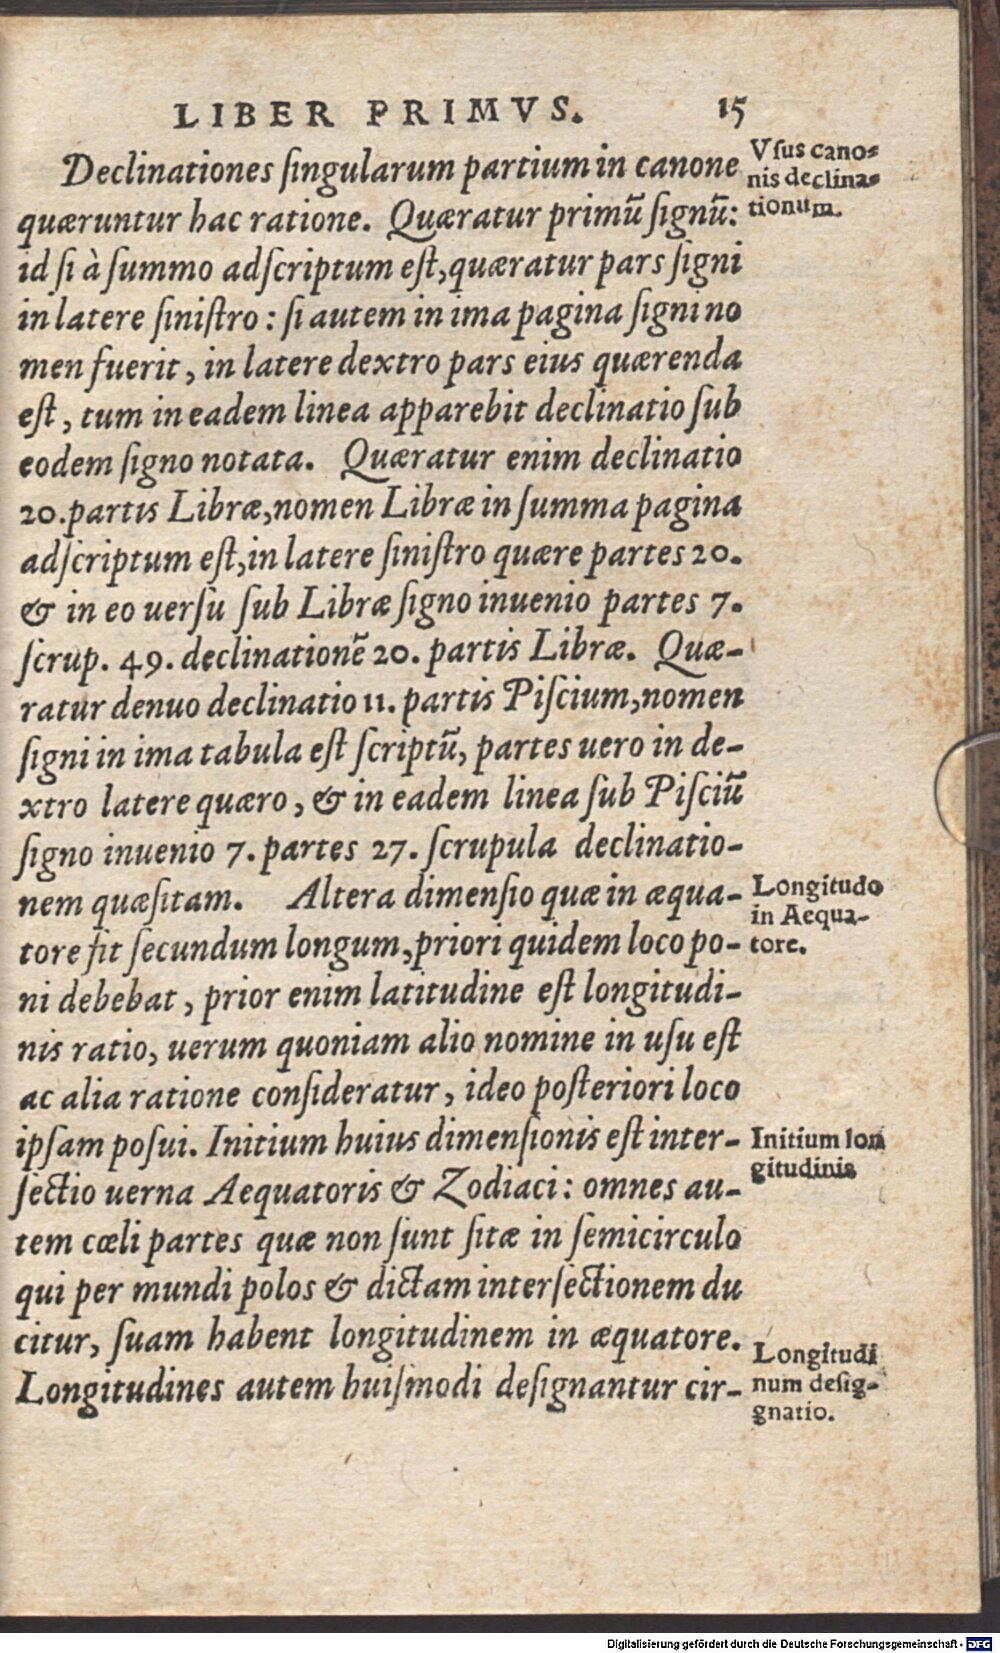 LIBER PRIMVS. 15
Declinationes ſingularum partium in canone
quæruntur hac ratione. Quæratur primũ ſignũ:
id ſi à ſummo adſcriptum eſt, quæratur pars ſigni
in latere ſiniſtro: ſi autem in ima pagina ſigni no
men fuerit, in latere dextro pars eius quærenda
eſt, tum in eadem linea apparebit declinatio ſub
eodem ſigno notata. Quæratur enim declinatio
20. partis Libræ, nomen Libræ in ſumma pagina
adſcriptum eſt, in latere ſiniſtro quære partes 20.
& in eo uerſu ſub Libræ ſigno inuenio partes 7.
ſcrup. 49. declinationẽ 20. partis Libræ. Quæ-
ratur denuo declinatio 11. partis Piſcium, nomen
ſigni in ima tabula eſt ſcriptũ, partes uero in de-
xtro latere quæro, & in eadem linea ſub Piſciũ
ſigno inuenio 7. partes 27. ſcrupula declinatio-
nem quæſitam. Altera dimenſio quæ in æqua-
tore fit ſecundum longum, priori quidem loco po-
ni debebat, prior enim latitudine eſt longitudi-
nis ratio, uerum quoniam alio nomine in uſu eſt
ac alia ratione conſideratur, ideo poſteriori loco
ipſam poſui. Initium huius dimenſionis eſt inter-
ſectio uerna Aequatoris & Zodiaci: omnes au-
tem cœli partes quæ non ſunt ſitæ in ſemicirculo
qui per mundi polos & dictam interſectionem du
citur, ſuam habent longitudinem in æquatore.
Longitudines autem huiſmodi deſignantur cir-
Vſus cano-
nis declina-
tionum.
Longitudo
in Aequa-
tore.
Initium lon
gitudinis
Longitudi
num deſig-
gnatio.
Digitalisierung gefördert durch die Deutsche Forschungsgemeinschaft - DFG